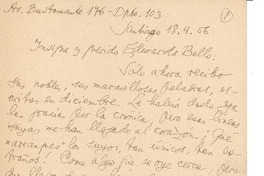 Av. Bustamante 176 - Dpto. 103
1
Santiago 18.4.66
Insigne y querido Edwards Bello:
Sólo ahora recibo
sus nobles, sus maravillosas palabras, es-
critas en diciembre. Le había dado
las gracias por la crónica. Pero esas líneas
suyas me han llegado al corazón. ¡Qué
"arranques" los suyos, tan únicos, han ex-
traños! Como algo que se oye cerca, pero